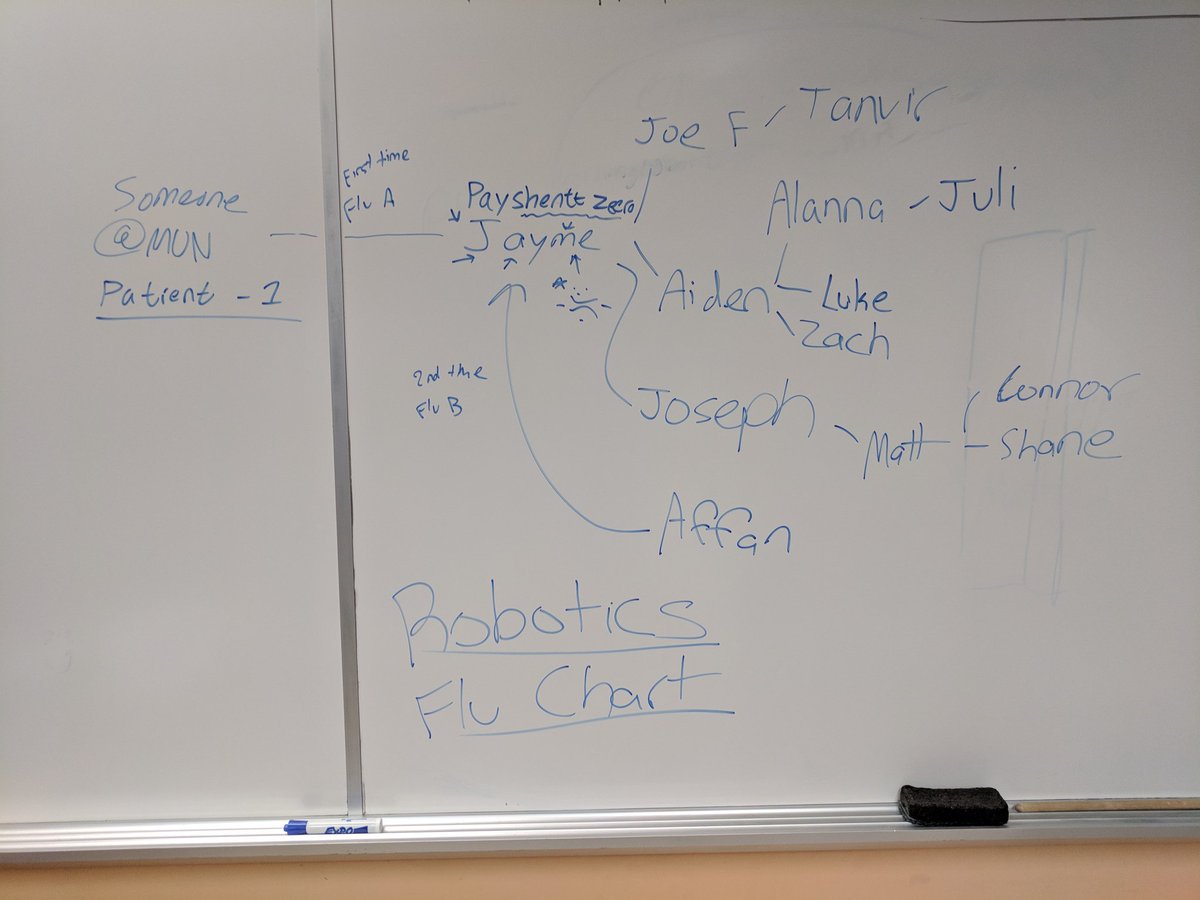 Someone
@MUN
Patient -1
First time
Flu A
Payshentt zeero
Jayme
2nd time
Flu B
Joe F
Tanvir
Alanna
Juli
Aiden
Luke
Zach
Joseph
Matt
Connor
Shane
Affan
Robotics
Flu Chart
EXPO